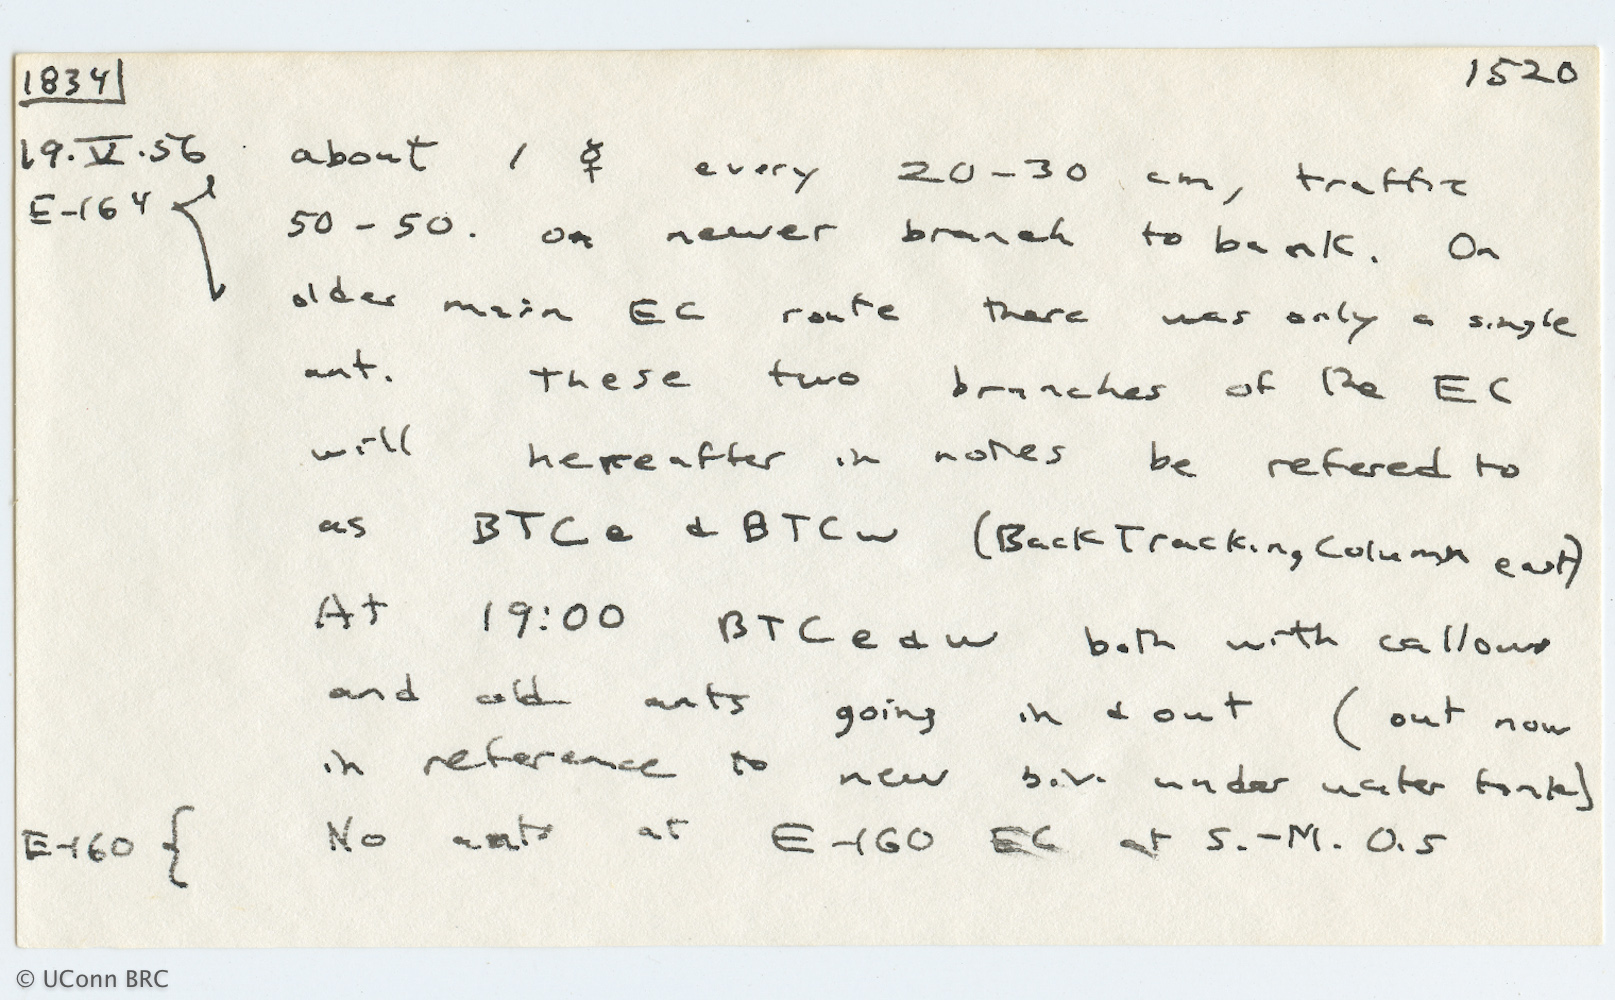 1834 1520
19.V.56 about 1 ☿ every 20-30 cm, traffic
E-164 { 50-50. on newer branch to bank. On
older main EC route there was only a single
ant. These two branches of the EC
will hereafter in notes be refered to
as BTCe & BTCw (BackTrackingColumn east)
At 19:00 BTCe & w both with callows
and old ants going in & out (out now
in reference to new biv. under water tank)
E-160 { No ants at E-160 EC at S.-M. 0.5
© UConn BRC